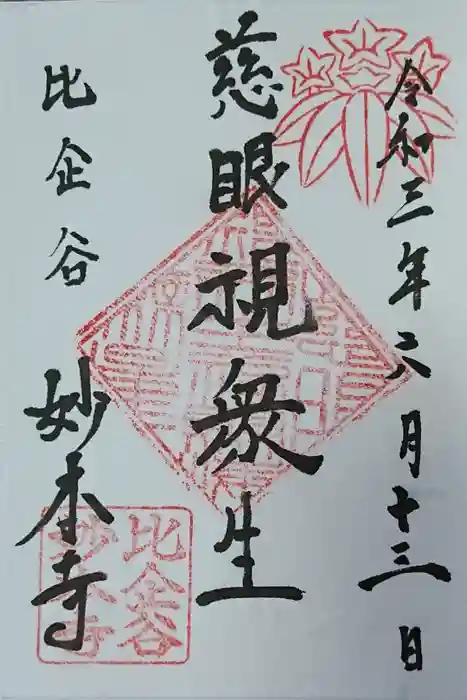 令和三年六月十三日
慈眼視衆生
比企谷
妙本寺
比企谷
妙本寺